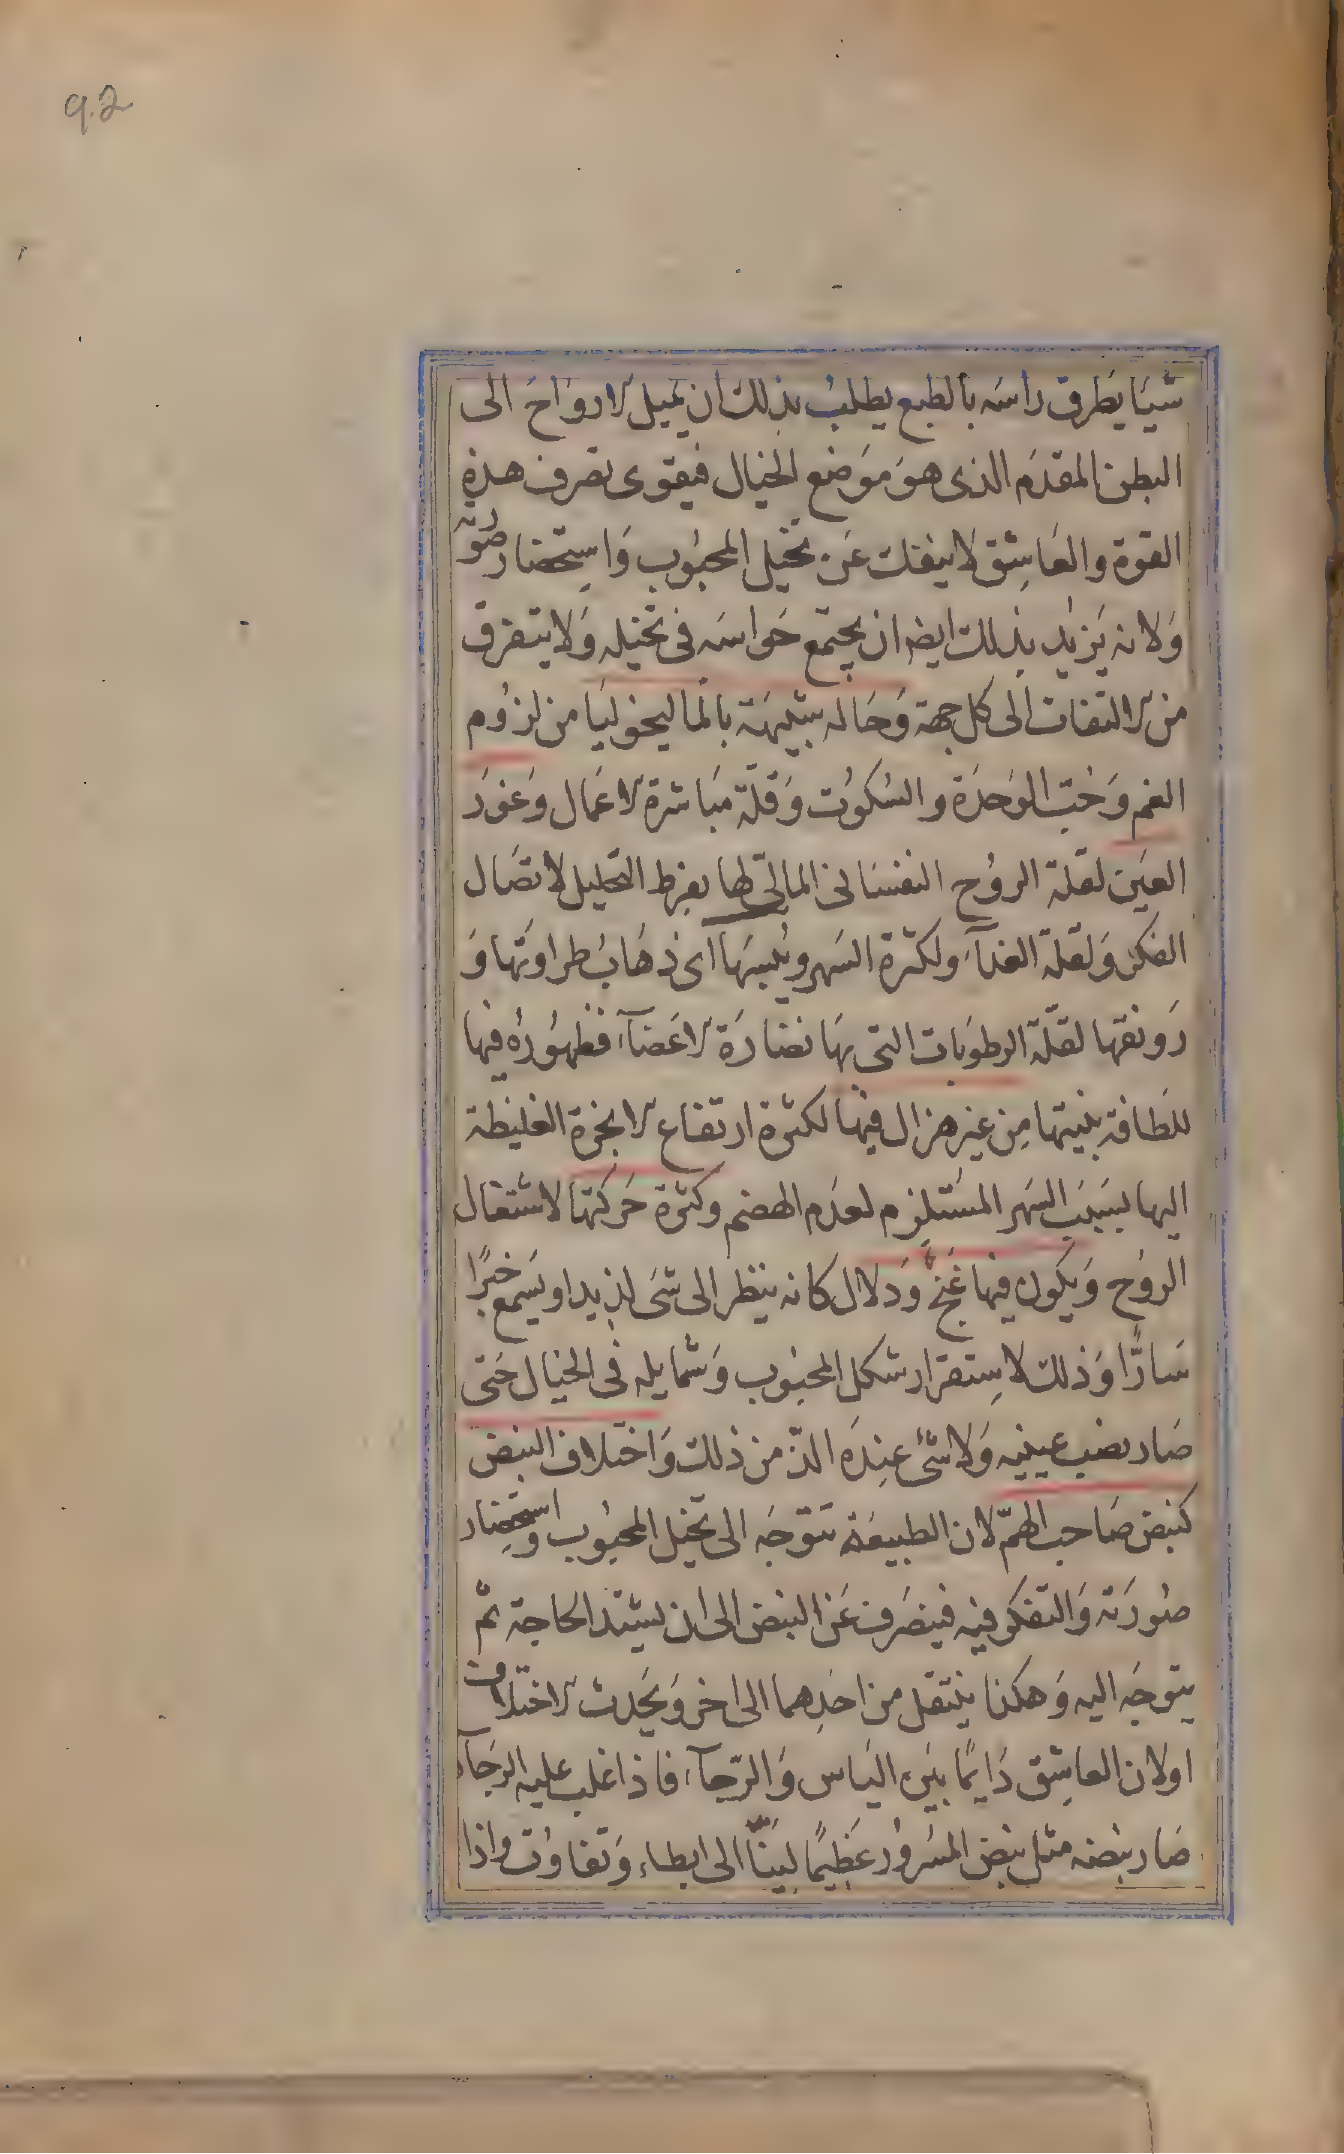 92
شيئا يطرق راسه بالطبع يطلب بذلك ان يميل الارواح الى
البطن المقدم الذى هو موضع الخيال فيقوى تصرف هذه
القوة والعاشق لا ينفك عن تخيل المحبوب واستحضار صورته
ولانه يزيد بذلك ايضا ان يجتمع حواسه فى تخيله ولا يتفرق
من الالتفات الى كل جهة وحاله شبيهة بالماليخوليا من لزوم
الغم وحب الوحدة والسكوت وقلة مباشرة الاعمال وغور
العين لقلة الروح النفسانى المالئ لها بفرط التحليل لاتصال
الفكر ولقلة الغذآء ولكثرة السهر ويبسها اى ذهاب طراوتها و
رونقها لقلة الرطوبات التى بها نضارة الاعضآء فظهوره فيها
للطافة بنيتها من غير هزال فيها لكثرة ارتفاع الابخرة الغليظة
اليها بسبب السهر المستلزم لعدم الهضم وكثرة حركتها لاشتغال
الروح ويكون فيها غنج ودلال كانه ينظر الى شى لذيذ او يسمع خبرًا
سارًّا وذلك لاستقرار شكل المحبوب وشمايله فى الخيال حتى
صار نصب عينيه ولا شئ عنده الذّ من ذلك واختلاف النبض
كنبض صاحب الهمّ لان الطبيعة تتوجه الى تخيل المحبوب واستحضار
صورته والتفكر فيه فينصرف عن النبض الى ان يشتد الحاجة ثم
يتوجه اليه وهكذا ينتقل من احدهما الى اخر ويحدث الاختلاف
او لان العاشق دايمًا بين الياس والرّجآء فاذا غلب عليه الرجآء
صار نبضه مثل نبض المسرور عظيمًا لينًّا الى ابطاء وتفاوت واذا